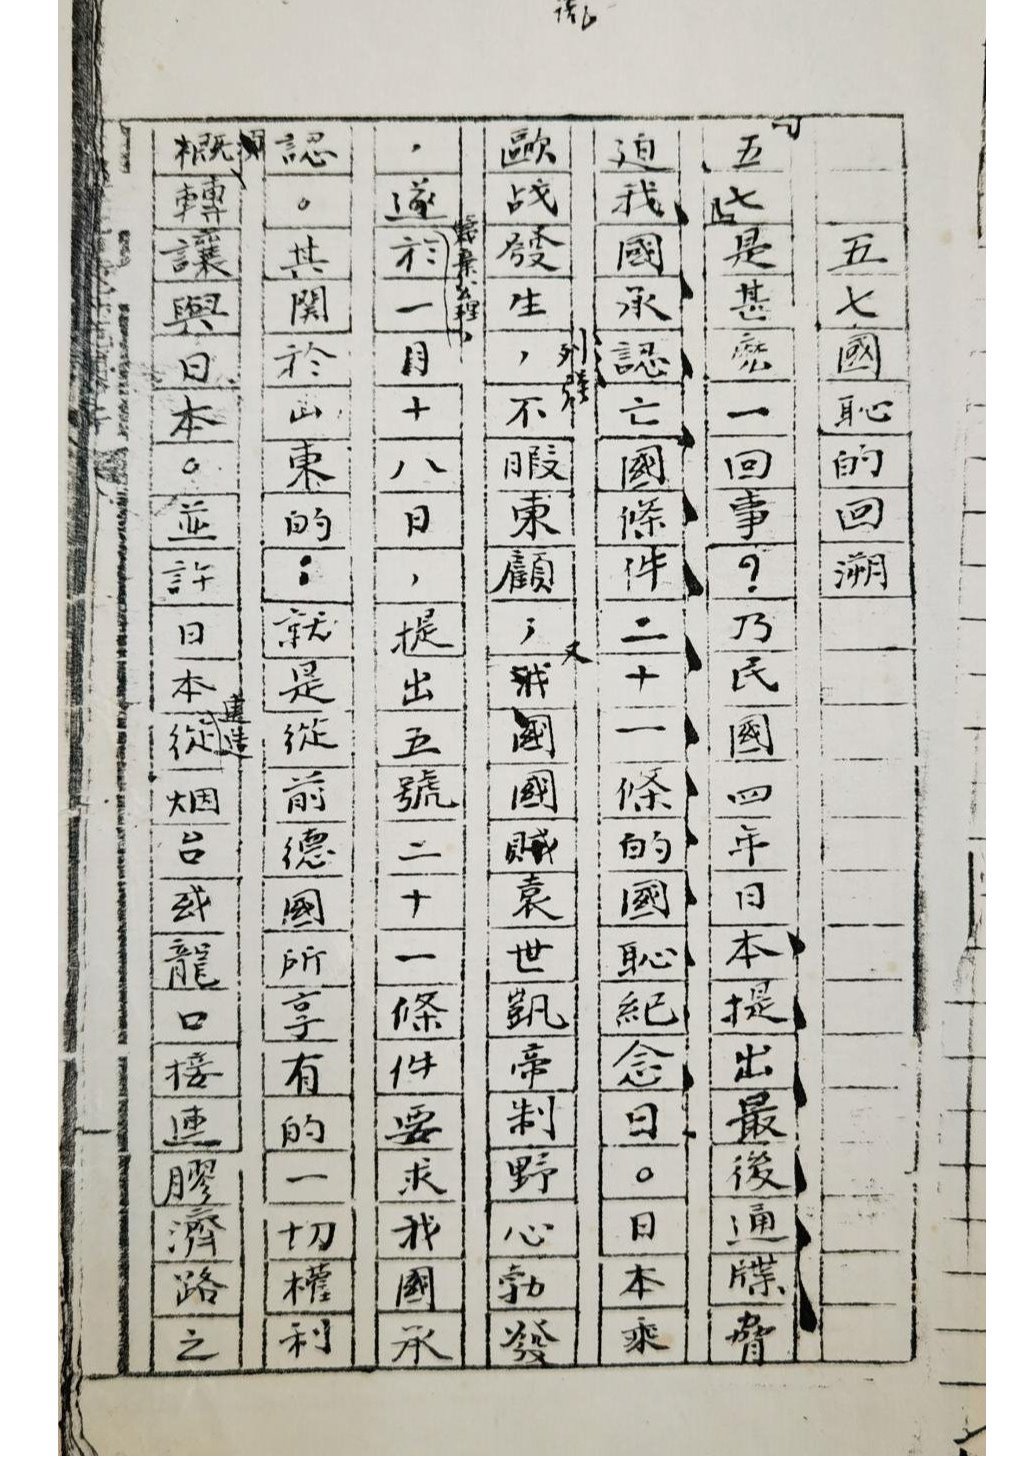 五七國恥的回溯
「五七」是甚麽一回事？乃民國四年日本提出最後通牒脅
迫我國承認亡國條件二十一條的國恥紀念日。日本乘
歐战發生，列強不暇東顧，又我國國賊袁世凱帝制野心勃發
，遂於一月十八日，提出五號二十一條件要求我國承
認。其関於山東的：就是從前德國所享有的一切權利
概須轉讓與日本。並許日本建造從烟台或龍口接連膠濟路之